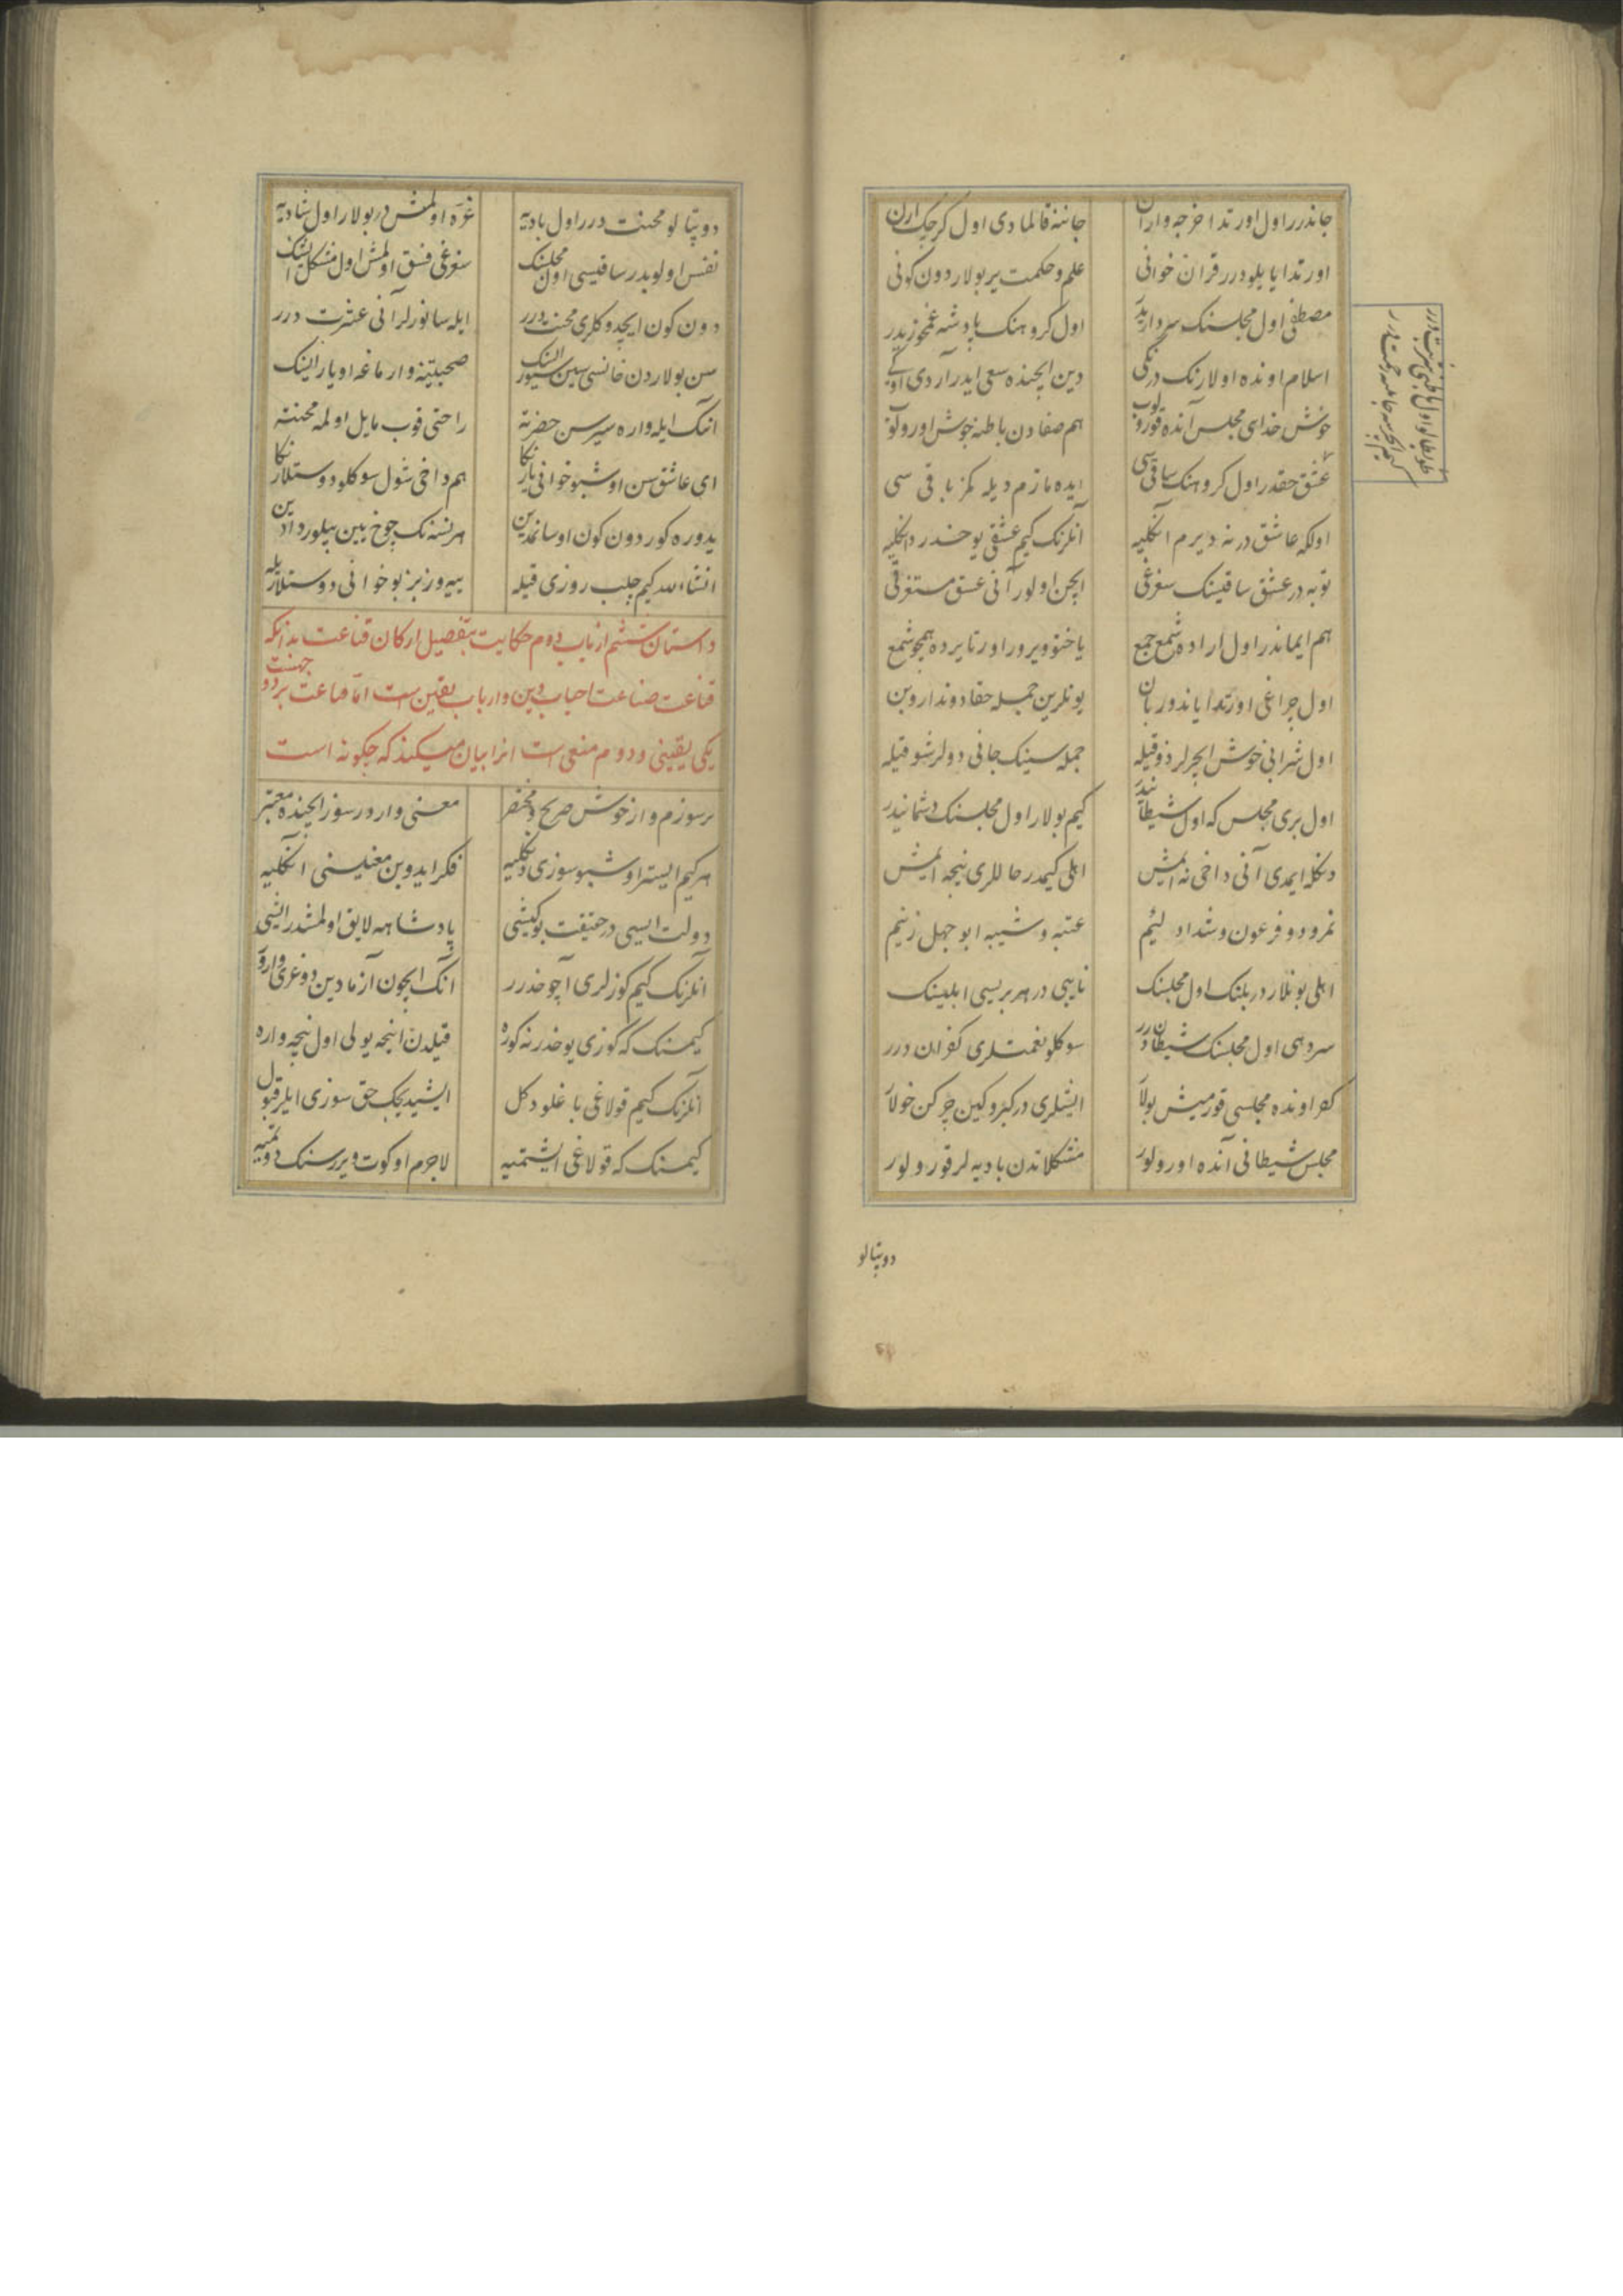 جانذرر اول اورتدا خرجه واران جاننه قالمادی اول کرجک ارن
اورتدا یایلودرر قران خوانی علم و حکمت یر بولار دون کونی
مصطفی اول مجلسنک سرداریدر اول کروهنک پادشه غمخوزیدر
اسلام اونده اولارنک درنکی دین ایچنده سعی ایدر آردی اوکی
خوش خدای مجلس آنده قورولوب هم صفادن باطنه خوش اورولور
عشق حقدر اول کروهنک ساقیسی ایده مازم دیله کمز باقی سی
اولکه عاشق در نه دیرم انکلیه آنلرنک کیم عشقی یوخدر دانکلیه
توبه در عشق ساقینک سغرغی ایچن اولور آنی عشق مستغرقی
هم ایماندر اول اراده شمع جمع یاختو ویرور اورتا یرده همچو شمع
اول چراغی اورتدا یاندوربان بونلرین جمله حقا دونداروبن
اول شرابی خوش ایچرلر ذوقیله جمله سینک جانی دولر شوقیله
اول بری مجلس که اول شیطانیدر کیم بولار اول مجلسنک دشمانیدر
دنکله ایمدی آنی داخی نه ایمش اهلی کیمدر حاللری نیجه ایمش
نمرود و فرعون و شداد لئیم عتبه و شیبه ابوجهل زنیم
اهلی بونلاردر بلنک اول مجلسنک نایبی در هر بریسی ابلیسنک
سردهی اول مجلسنک شیطاندرر سوکلو نغمتلری کفران درر
کفر اونده مجلسی قورمیش بولار ایشلری در کبر و کین چرکن خولار
مجلس شیطانی آنده اورولور مشکلاتدن بادیه لر قورولور
دوپتالو
دوپتالو محنت درر اول بادیه غره اولمش در بولار اول شادیه
نفس اولوبدر ساقیسی اول مجلسنک سغرغی فسق اولمش اول مشکل ایشنک
دون کون ایچدوکلری محنت درر ایله سانورلر آنی عشرت درر
سن بولاردن خانسی سین سیور صحبتینه وارماغه اویار اینک
انک ایله واره سیرسن حضرته راحتی قوب مایل اولمه محنته
ای عاشق سن اوشبو خوانی یارنکا هم داخی شول سوکلو دوستلارنکا
یدوره کور دون کون اوسانمدین هر نسنه نک چوخ یین بیلور دادین
انشاءالله کیم چلب روزی قیله ییه ورز بز بو خوانی دوستلاریله
داستان ششم از باب دوم حکایت بتفصیل ارکان قناعت بدانکه
قناعت صناعت احباب دین و ارباب یقین است اما قناعت بر دو جهنست
یکی یقینی و دوم منعی است انرا بیان میکند که چکونه است
بر سوزم وار خوش صریح و مختصر معنی وار در سوز ایچنده معتبر
هر کیم ایستر اوشبو سوزی دنکلیه فکر ایدوبن معنیسنی انکلیه
دولت ایسی در حقیقت بو کیشی پادشاهه لایق اولمشدر ایشی
آنلرنک کیم کوزلری آچوخدرر انک ایچون آزمادین دوغری وارور
کیمسنک که کوزی یوخدر نه کوره قیلدن اینجه یولی اول نیجه واره
آنلرنک کیم قولاغی باغلو دکل ایشیدیجک حق سوزی ایلر قبول
کیمسنک که قولاغی ایشتمیه لاجرم اوکوت ویررسنک دوتمیه